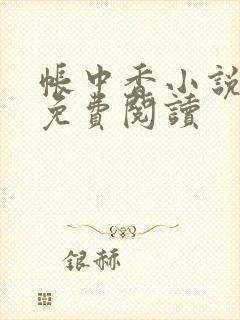 帳中香小說
免費閱讀
銀赫